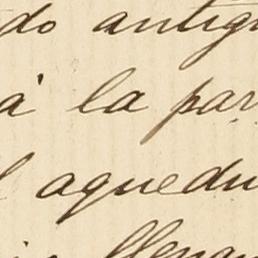 do antigu
á la par
l aquedu
llegan